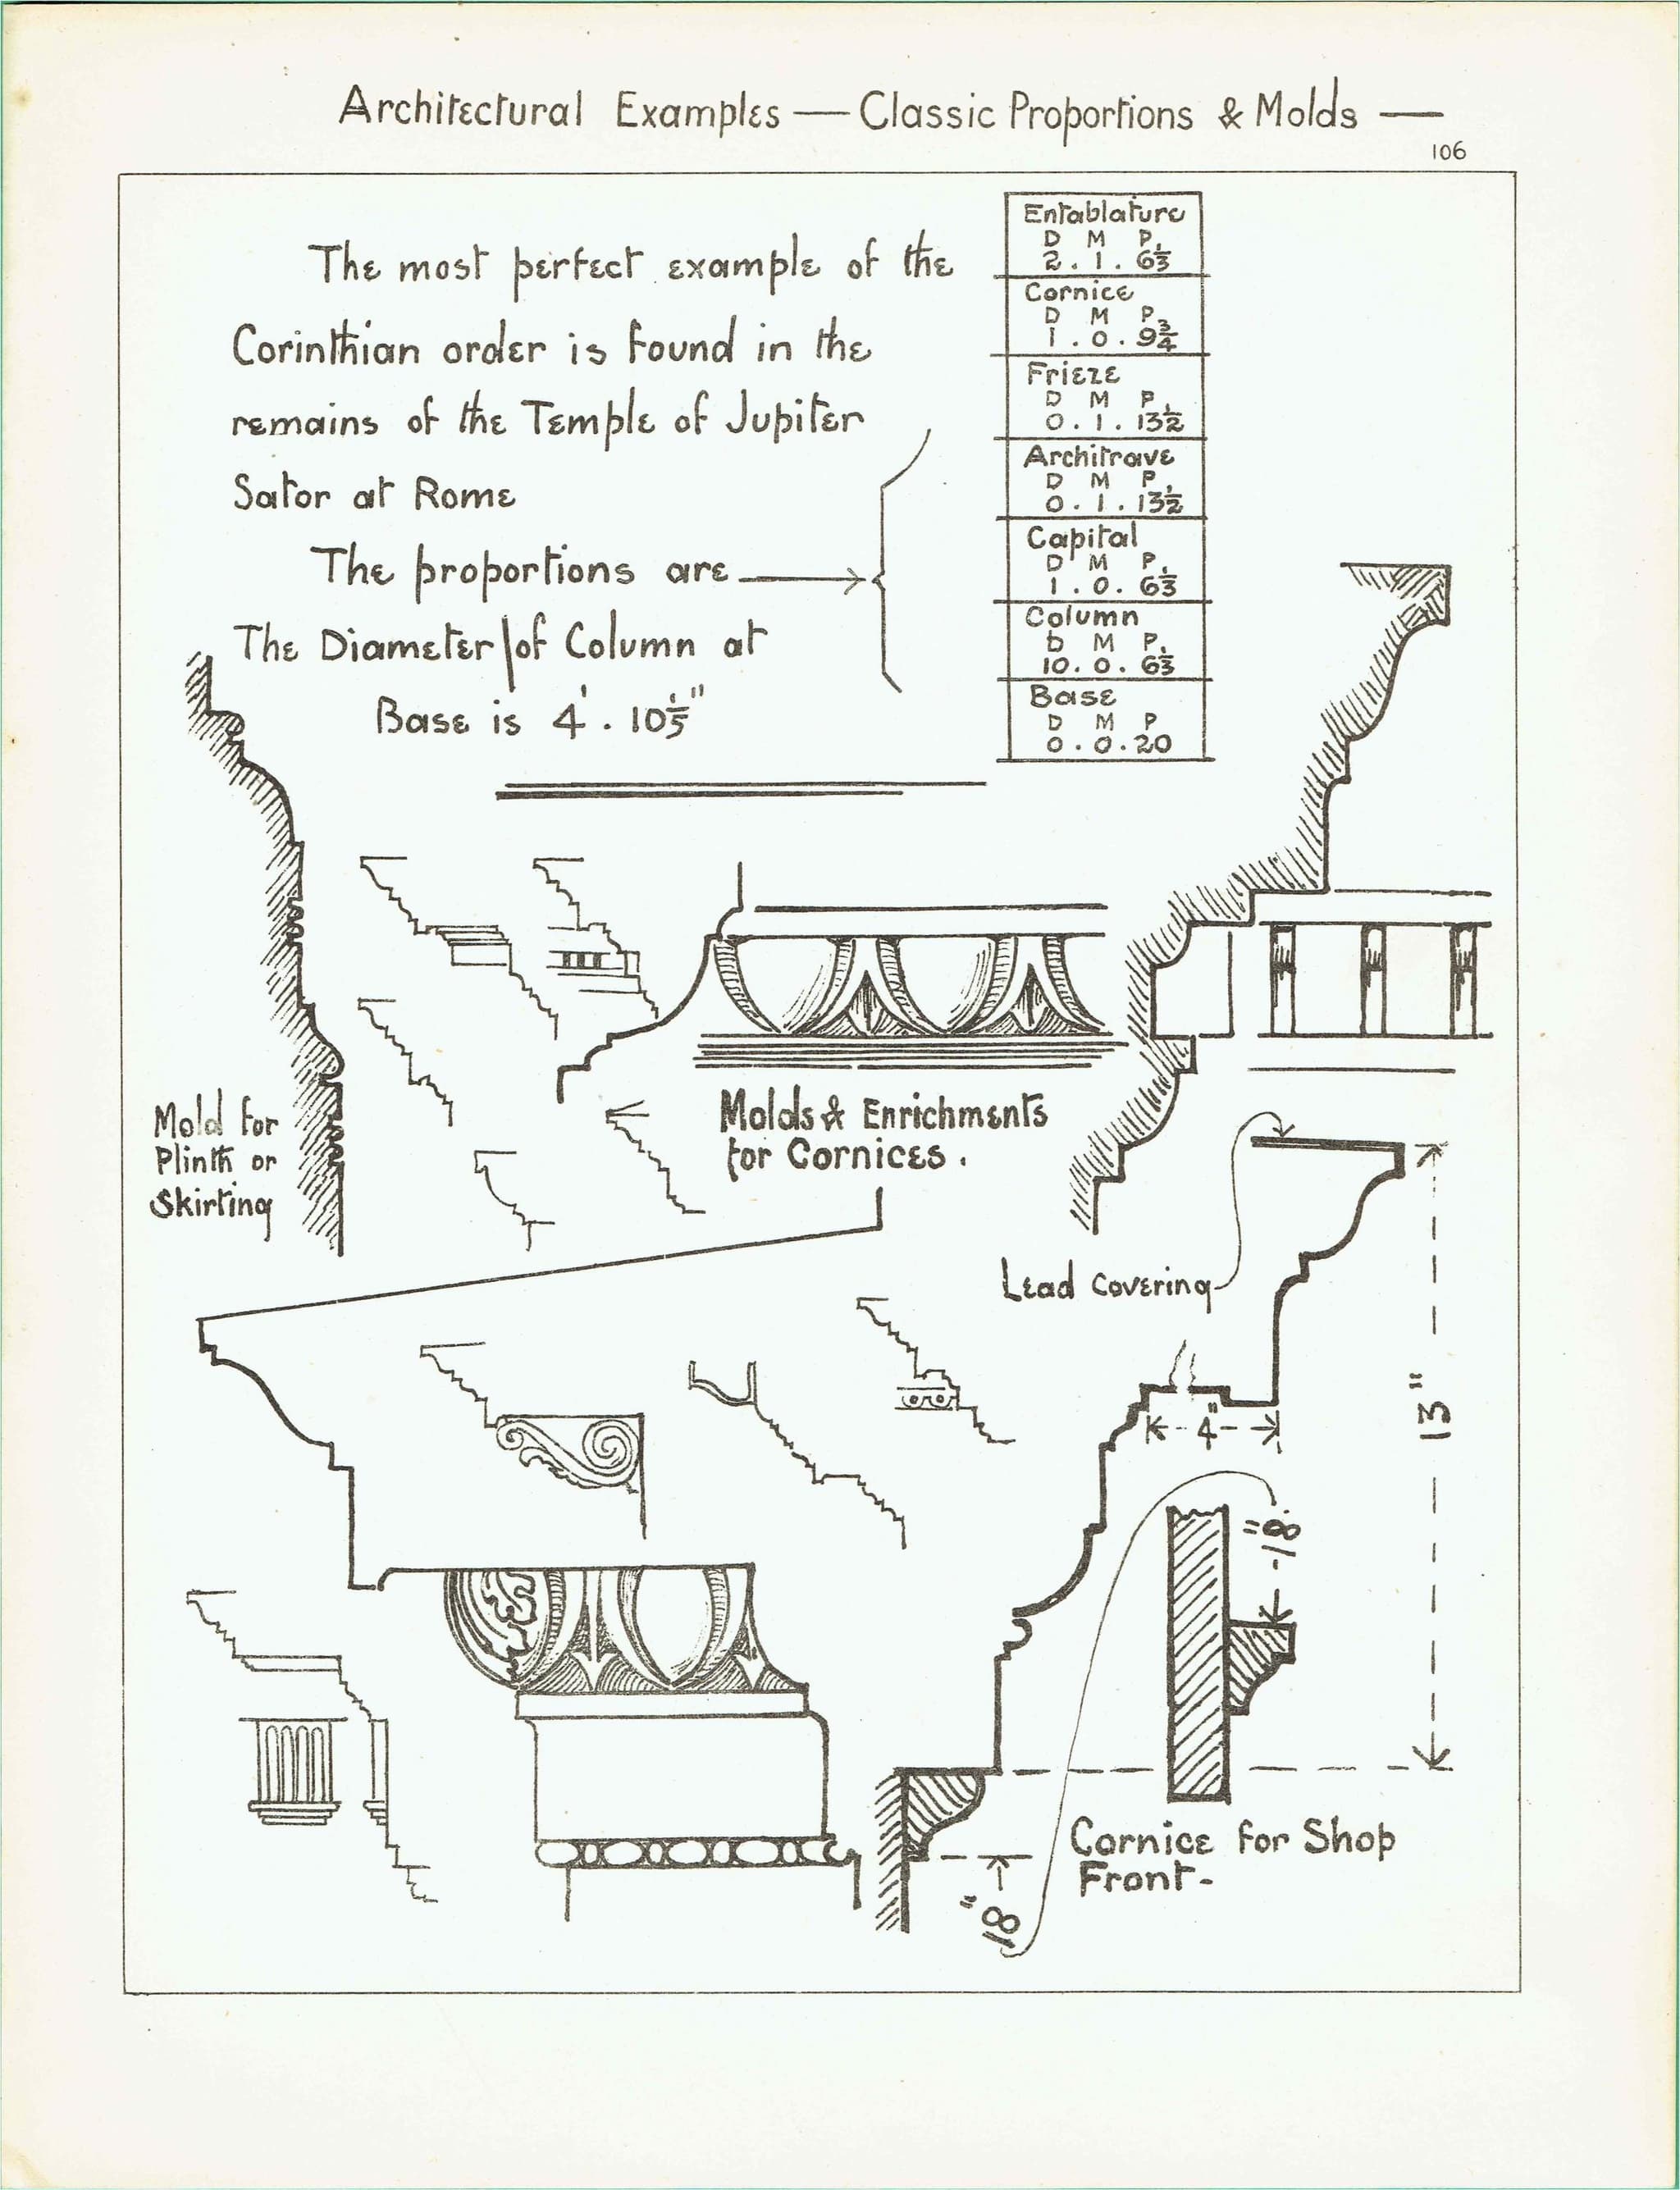 Architectural Examples — Classic Proportions & Molds —
106
The most perfect example of the
Corinthian order is found in the
remains of the Temple of Jupiter
Sator at Rome
The proportions are
The Diameter of Column at
Base is 4' . 10 1/5"
Entablature
D M P
2 . 1 . 6 1/3
Cornice
D M P
1 . 0 . 9 3/4
Frieze
D M P
0 . 1 . 13 1/2
Architrave
D M P
0 . 1 . 13 1/2
Capital
D M P
1 . 0 . 6 1/3
Column
D M P
10 . 0 . 6 1/3
Base
D M P
0 . 0 . 20
Mold for
Plinth or
Skirting
Molds & Enrichments
for Cornices .
Lead Covering
4"
13"
18"
18"
Cornice for Shop
Front -